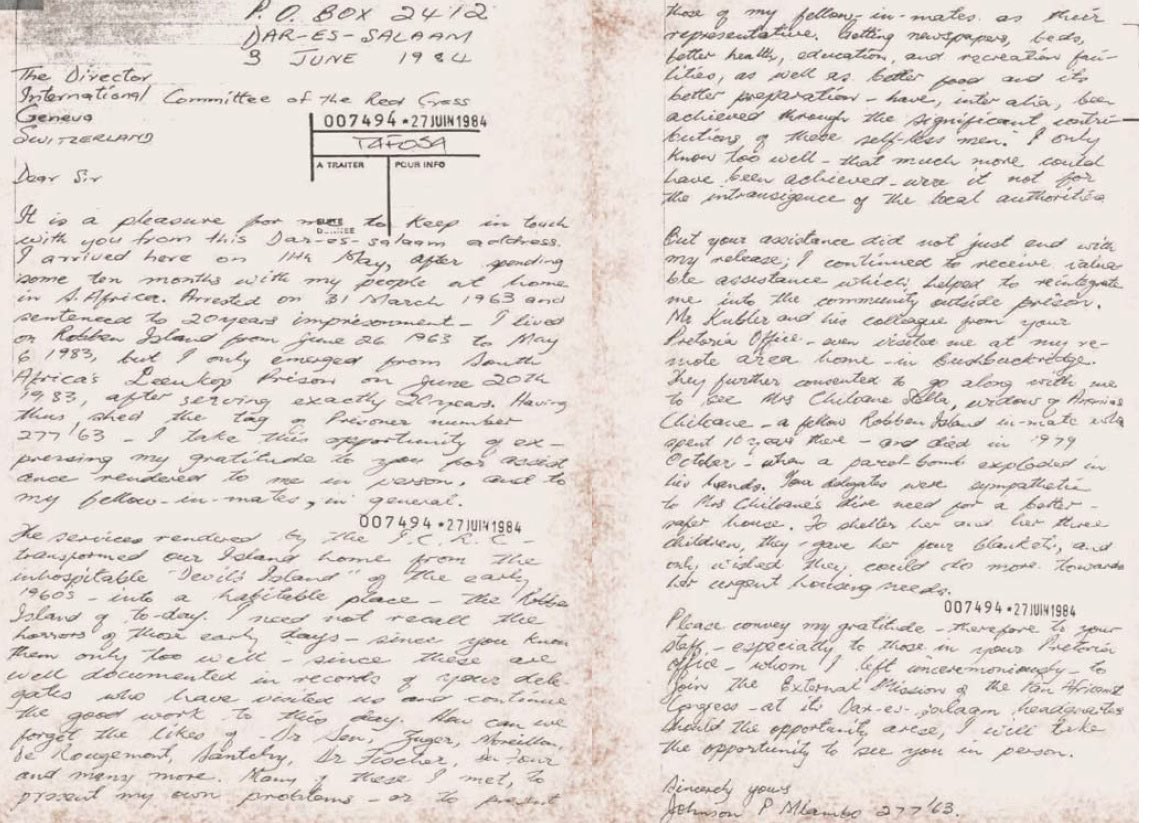 P.O. BOX 2412
DAR-ES-SALAAM
3 JUNE 1984
The Director
International Committee of the Red Cross
Geneva
SWITZERLAND
007494 * 27 JUIN 1984
TAFOSA
A TRAITER POUR INFO
Dear Sir
It is a pleasure for me to keep in touch
with you from this Dar-es-salaam address.
I arrived here on 11th May, after spending
some ten months with my people at home
in S. Africa. Arrested on 31 March 1963 and
sentenced to 20 years imprisonment - I lived
on Robben Island from June 26 1963 to May
6 1983, but I only emerged from South
Africa's Leeukop Prison on June 20th
1983, after serving exactly 20 years. Having
thus shed the tag of Prisoner number
277/63 - I take this opportunity of ex-
pressing my gratitude to you for assist
ance rendered to me in person, and to
my fellow-in-mates, in general.
007494 * 27 JUIN 1984
The services rendered by the I.C.R.C -
transformed our Island home from the
inhospitable "Devil's Island" of the early
1960s - into a habitable place - the Robben
Island of to-day. I need not recall the
horrors of those early days - since you know
them only too well - since these are
well documented in records of your dele-
gates who have visited us and continue
the good work to this day. How can we
forget the likes of - Dr Sen, Zuger, Moreillon,
de Rougemont, Santchy, Dr Fischer,
and many more. Many of these I met, to
present my own problems - or to present
those of my fellow-in-mates as their
representative. Getting newspapers, beds,
better health, education, and recreation faci-
lities, as well as better food and its
better preparation - have, inter alia, been
achieved through the significant contri-
butions of these self-less men. I only
know too well - that much more could
have been achieved - were it not for
the intransigence of the local authorities
But your assistance did not just end with
my release; I continued to receive valua
ble assistance which helped to reintegrate
me into the community outside prison.
Mr Kubler and his colleague from your
Pretoria Office - even visited me at my re-
mote area home - in Bushbuckridge.
They further consented to go along with me
to see Mrs Chiloane Lilla, widow of
Chiloane - a fellow Robben Island in-mate who
spent 10 years there - and died in 1979
October - when a parcel-bomb exploded in
his hands. Your delegates were sympathetic
to Mrs Chiloane's dire need for a better -
safer house. To shelter her and her three
children, they gave her four blankets, and
only wished they could do more towards
her urgent housing needs.
007494 * 27 JUIN 1984
Please convey my gratitude - therefore to your
staff, - especially to those in your Pretoria
office - whom I left unceremoniously - to
join the External Mission of the Pan Africanist
Congress - at its Dar-es-Salaam headquarters
Should the opportunity arise, I will take
the opportunity to see you in person.
Sincerely yours
Johnson P Mlambo 277/63.